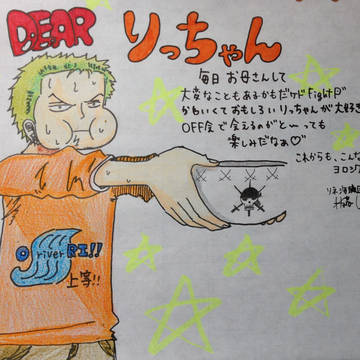 DEAR りっちゃん
毎日 お母さんして
大変なこともあるかもだケド Fight
かわいくておもしろいりっちゃんが大好き
OFF会で会えるのがと〜っても
楽しみだなぁ♡
これからも、こんな
ヨロシク
O river RI!!
上等!!